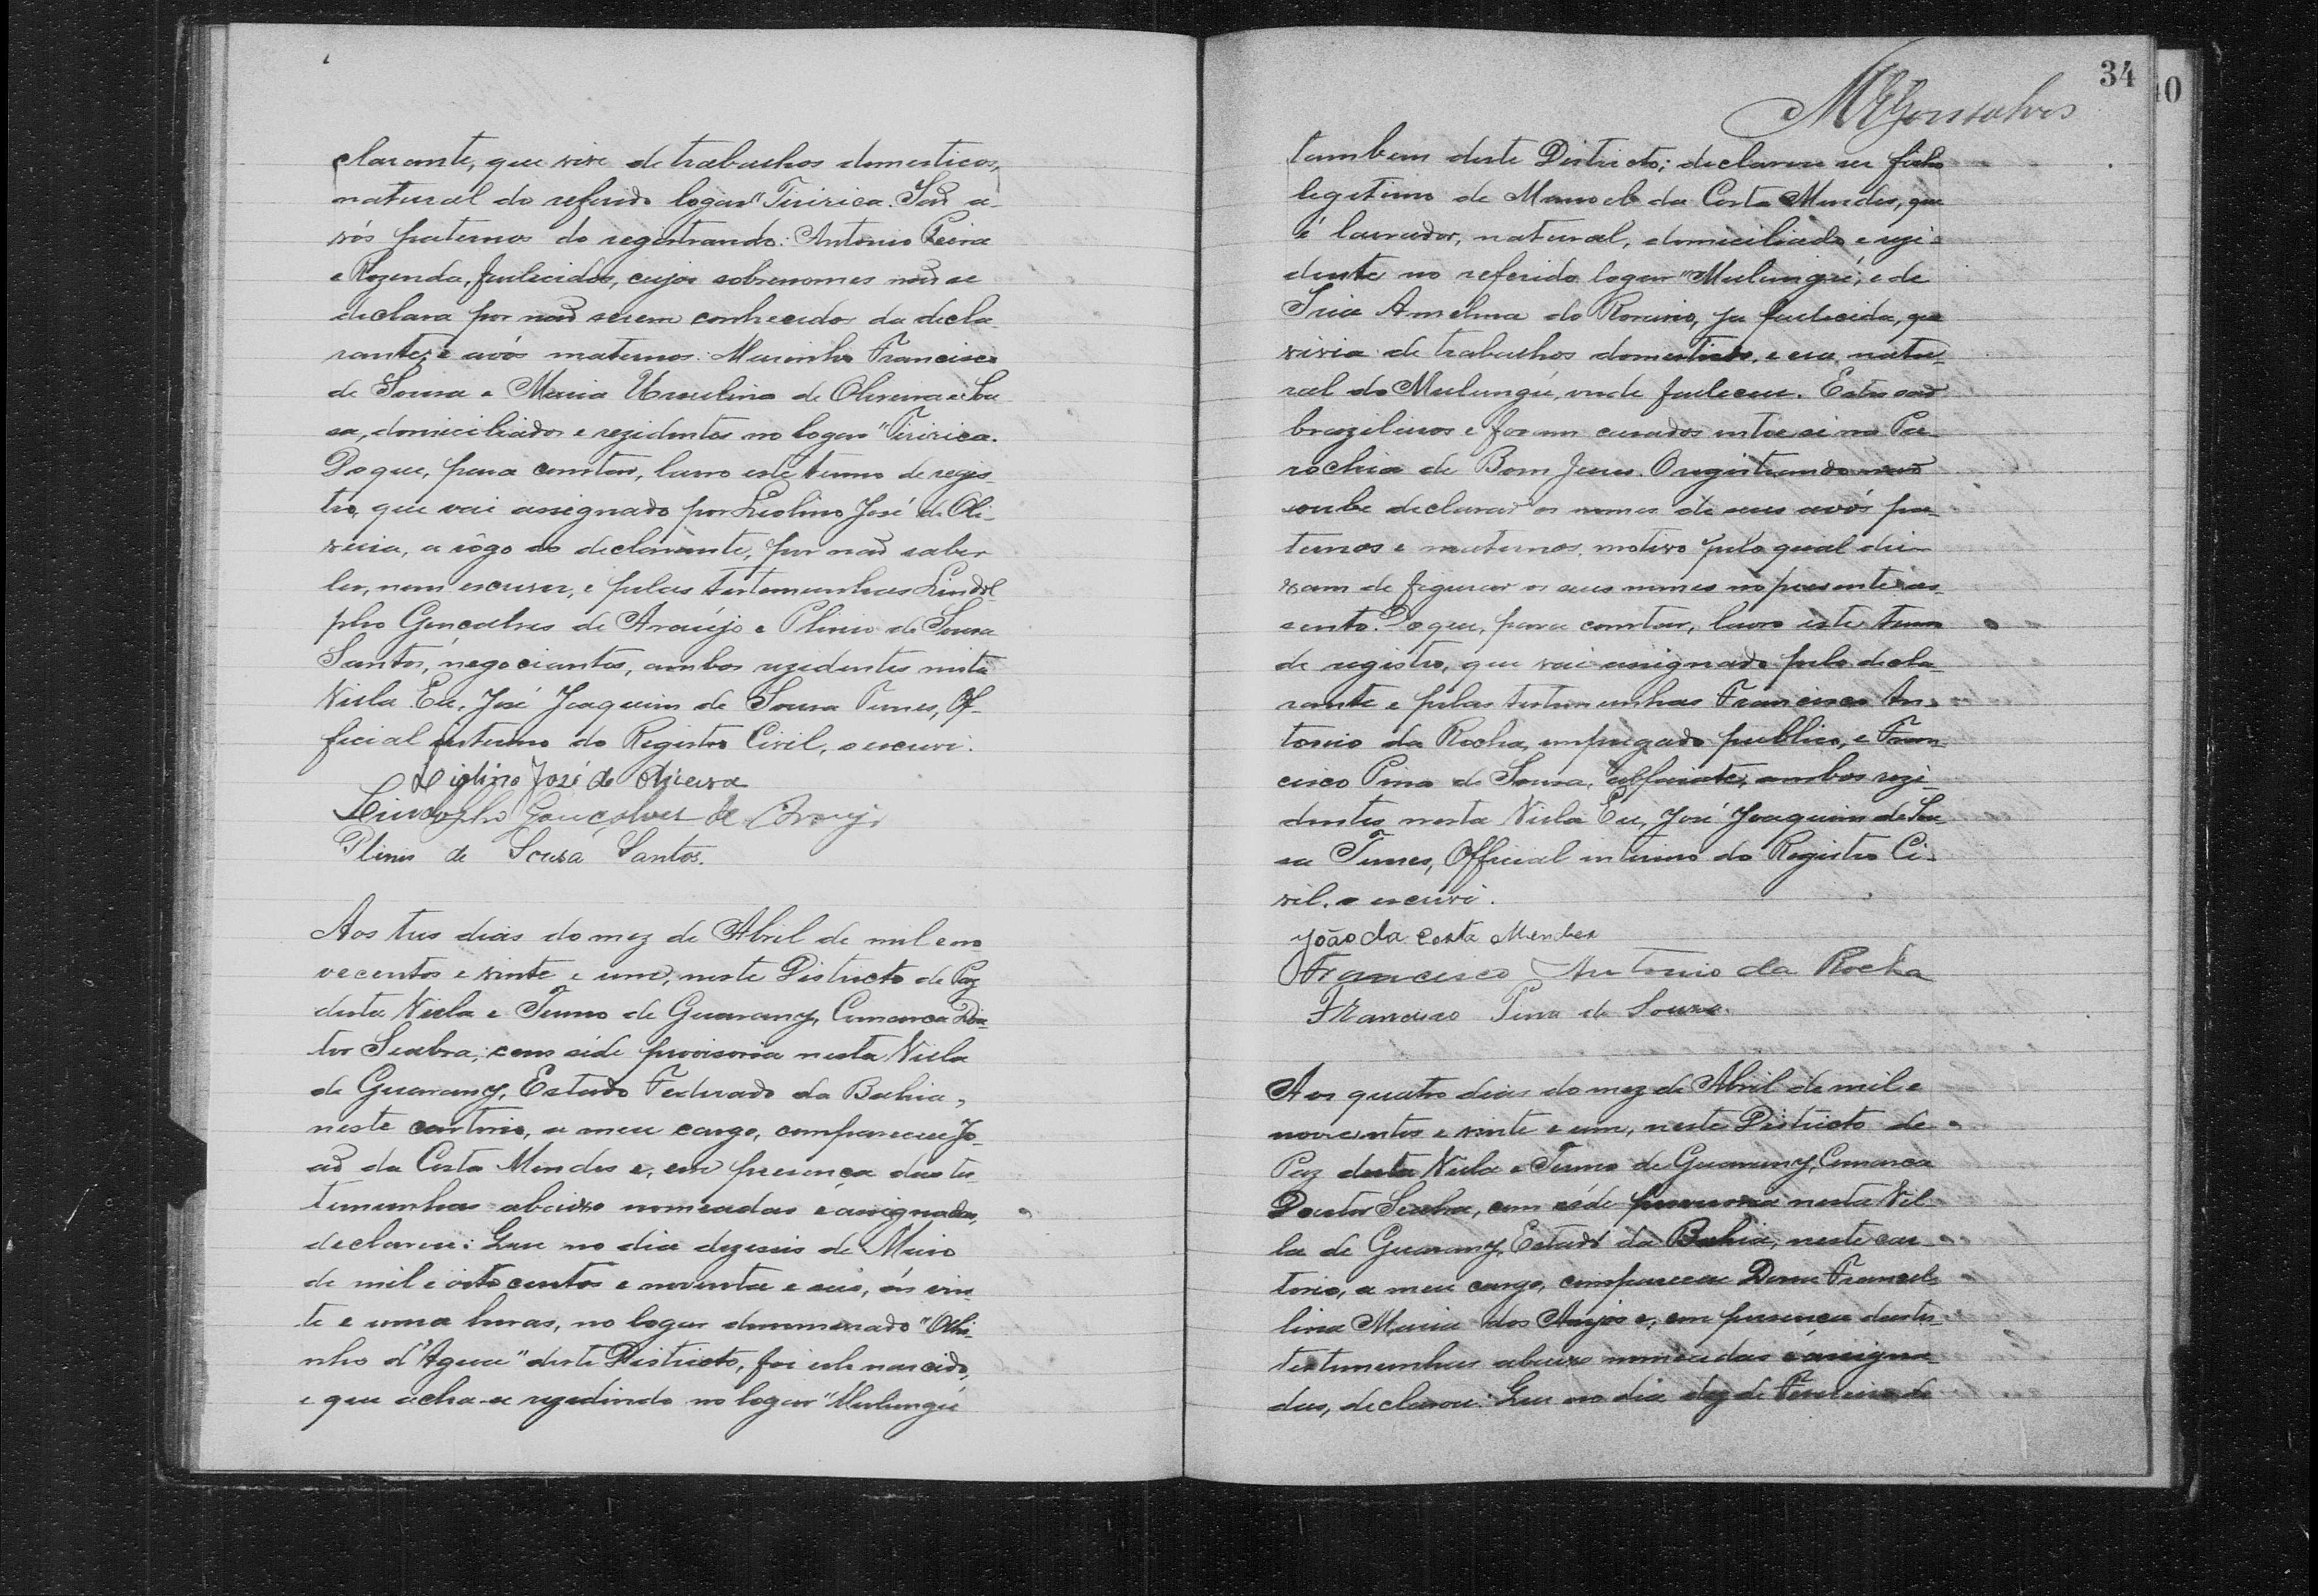 clarante, que vive de trabalhos domesticos,
natural do referido logar "Tiririca. São a-
vós paternos do registrando: Antonio
e Rozenda, fallecidos, cujos sobrenomes não se
declara por não serem conhecidos da decla-
rante; e avós maternos: Marinho Francisco
de Sousa e Maria Ursulina de Oliveira e Sou-
sa, domiciliados e rezidentes no logar "Tiririca.
Do que, para constar, lavro este termo de regis-
tro, que vai assignado por Liolino José de Oli-
veira, a rôgo do declarante, por não saber
ler, nem escrever, e pelas testemunhas Lindol-
pho Gonçalves de Araújo e Plinio de Sousa
Santos, negociantes, ambos rezidentes nesta
Villa. Eu, José Joaquim de Sousa Tunes, Of-
ficial interino do Registro Civil, o escrevi.
José de Oliveira
Lindolpho Gonçalves de Araujo
Plinio de Sousa Santos.
Aos tres dias do mez de Abril de mil e no
vecentos e vinte e um, neste Districto de Paz
desta Villa e Termo de Guarany, Comarca Dou-
tor Seabra, com séde provisoria nesta Villa
de Guarany, Estado Federado da Bahia,
neste cartorio, a meu cargo, compareceu Jo-
ão da Costa Mendes e, em presença das tes-
temunhas abaixo nomeadas e assignadas,
declarou: Que no dia dezeseis de Maio
de mil e oitocentos e noventa e seis, ás vin-
te e uma horas, no logar denominado "Olhi-
nho d'Agua" deste Districto, foi elle nascido,
e que acha-se rezidindo no logar "Mulungú
34
40
MRGonsalves
tambem deste Districto; declarou ser filho
legitimo de Manoel da Costa Mendes, que
é lavrador, natural, domiciliado e rezi-
dente no referido logar "Mulungú; e de
Anselma do Rosario, ja fallecida, que
vivia de trabalhos domesticos, e era natu-
ral do Mulungú, onde falleceu. Estes são
brazileiros e foram casados entre si na Pa-
rochia de Bom Jesus. O registrando não
soube declarar os nomes de seus avós pa-
ternos e maternos, motivo pelo qual dei-
xam de figurar os seus nomes no presente as-
sento. Do que, para constar, lavro este termo
de registro, que vai assignado pelo decla-
rante e pelas testemunhas Francisco An-
tonio da Rocha, empregado publico, e Fran-
cisco Pina de Sousa, alfaiate, ambos rezi-
dentes nesta Villa. Eu, José Joaquim de Sou-
sa Tunes, Official interino do Registro Ci-
vil, o escrevi.
João da Costa Mendes
Francisco Antonio da Rocha
Francisco Pina de Souza.
Aos quatro dias do mez de Abril de mil e
novecentos e vinte e um, neste Districto de
Paz desta Villa e Termo de Guarany, Comarca
Doutor Seabra, com séde provisoria nesta Vil-
la de Guarany, Estado da Bahia, neste car-
torio, a meu cargo, compareceu Dona Francel-
lina Maria dos Anjos e, em presença das
testemunhas abaixo nomeadas e assigna-
das, declarou: Que no dia dez de Fevereiro de